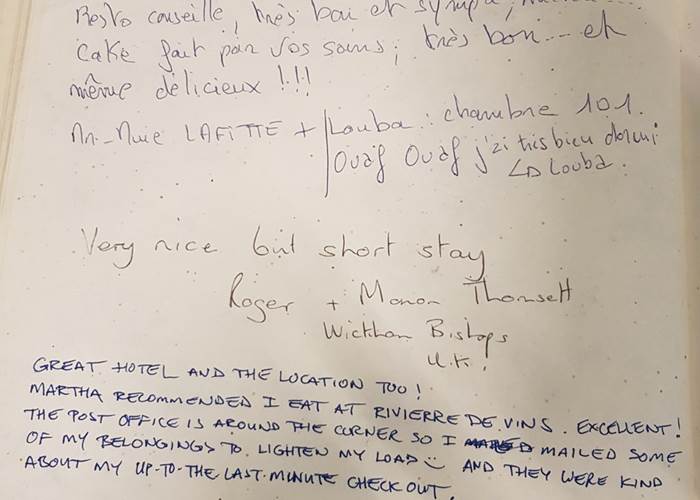 Resto conseillé, très bon et sympa,
Cake fait par vos soins, très bon... et
même délicieux !!!
LAFITTE + Louba : chambre 101.
Ouaf Ouaf j'ai très bien dormi
Louba.
Very nice but short stay
Roger + Manon Thomsett
Wickham Bishops
U.K.!
GREAT HOTEL AND THE LOCATION TOO!
MARTHA RECOMMENDED I EAT AT RIVIERRE DE VINS. EXCELLENT!
THE POST OFFICE IS AROUND THE CORNER SO I MAILED SOME
OF MY BELONGINGS TO LIGHTEN MY LOAD AND THEY WERE KIND
ABOUT MY UP-TO-THE LAST-MINUTE CHECK OUT.